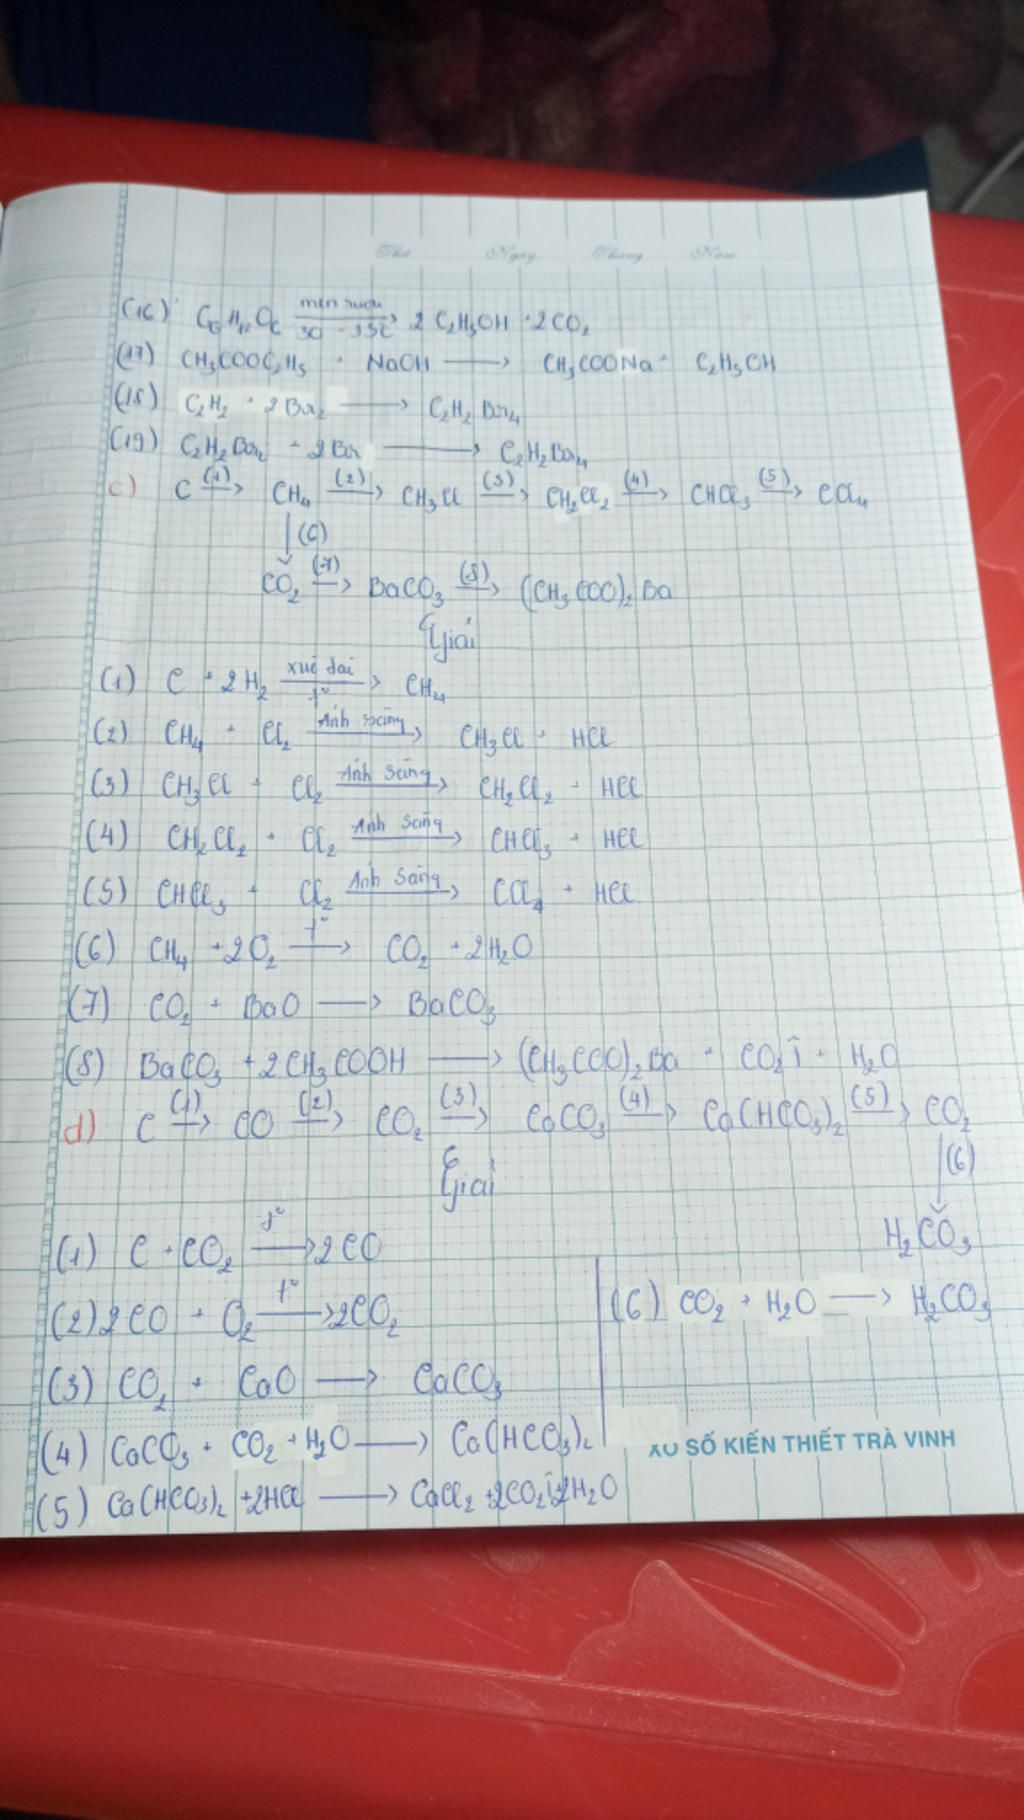 Thứ Ngày Tháng Năm
(16) C6H12O6 men rượu 30 - 35C 2 C2H5OH + 2CO2
(17) CH3COOC2H5 + NaOH → CH3COONa + C2H5OH
(18) C2H2 + 2Br2 → C2H2Br4
(19) C2H2Br2 + 2Br → C2H2Br4
c) C (1)→ CH4 (2)→ CH3Cl (3)→ CH2Cl2 (4)→ CHCl3 (5)→ CCl4
↓(6)
CO2 (7)→ BaCO3 (8)→ (CH3COO)2Ba
Giải
(1) C + 2H2 xúc tác t° → CH4
(2) CH4 + Cl2 Ánh sáng → CH3Cl + HCl
(3) CH3Cl + Cl2 Ánh sáng → CH2Cl2 + HCl
(4) CH2Cl2 + Cl2 Ánh sáng → CHCl3 + HCl
(5) CHCl3 + Cl2 Ánh sáng → CCl4 + HCl
(6) CH4 + 2O2 t° → CO2 + 2H2O
(7) CO2 + BaO → BaCO3
(8) BaCO3 + 2CH3COOH → (CH3COO)2Ba + CO2↑ + H2O
d) C (1)→ CO (2)→ CO2 (3)→ CaCO3 (4)→ Ca(HCO3)2 (5)→ CO2
↓(6)
Giải
H2CO3
(1) C + CO2 t° → 2CO
(2) 2CO + O2 t° → 2CO2
(6) CO2 + H2O → H2CO3
(3) CO2 + CaO → CaCO3
(4) CaCO3 + CO2 + H2O → Ca(HCO3)2
XỔ SỐ KIẾN THIẾT TRÀ VINH
(5) Ca(HCO3)2 + 2HCl → CaCl2 + 2CO2↑ + 2H2O